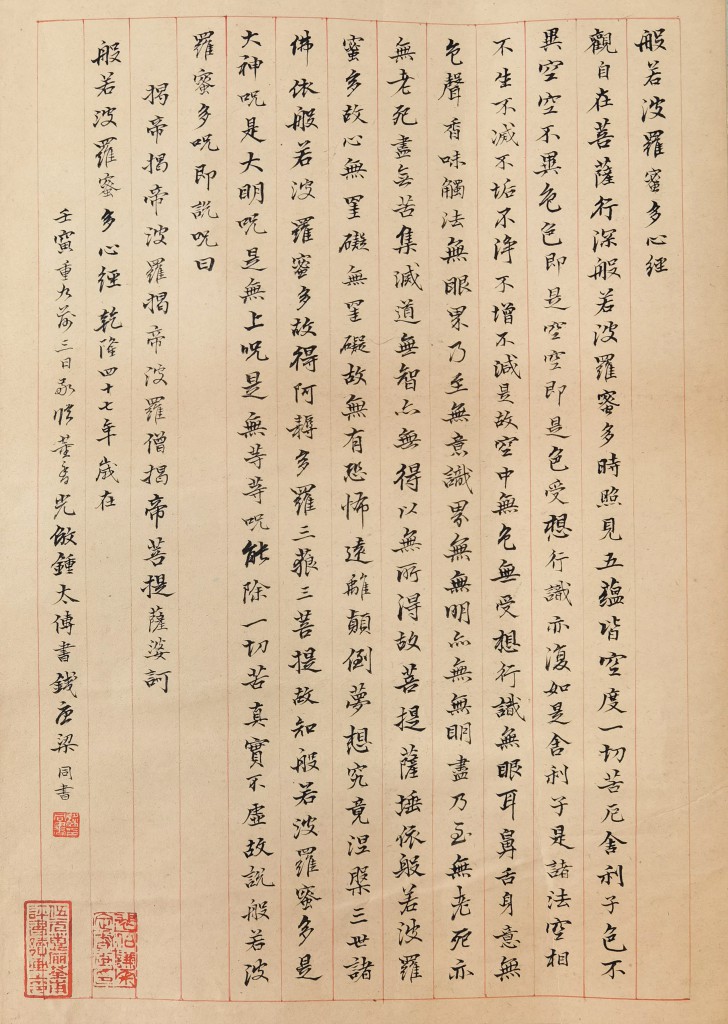 般若波羅蜜多心經
觀自在菩薩行深般若波羅蜜多時照見五蘊皆空度一切苦厄舍利子色不
異空空不異色色即是空空即是色受想行識亦復如是舍利子是諸法空相
不生不滅不垢不淨不增不減是故空中無色無受想行識無眼耳鼻舌身意無
色聲香味觸法無眼界乃至無意識界無無明亦無無明盡乃至無老死亦
無老死盡無苦集滅道無智亦無得以無所得故菩提薩埵依般若波羅
蜜多故心無罣礙無罣礙故無有恐怖遠離顛倒夢想究竟涅槃三世諸
佛依般若波羅蜜多故得阿耨多羅三藐三菩提故知般若波羅蜜多是
大神呪是大明呪是無上呪是無等等呪能除一切苦真實不虛故說般若波
羅蜜多呪即說呪曰
揭帝揭帝波羅揭帝波羅僧揭帝菩提薩婆訶
般若波羅蜜多心經 乾隆四十七年歲在
壬寅重九前三日敬臨董香光倣鍾太傅書錢唐梁同書